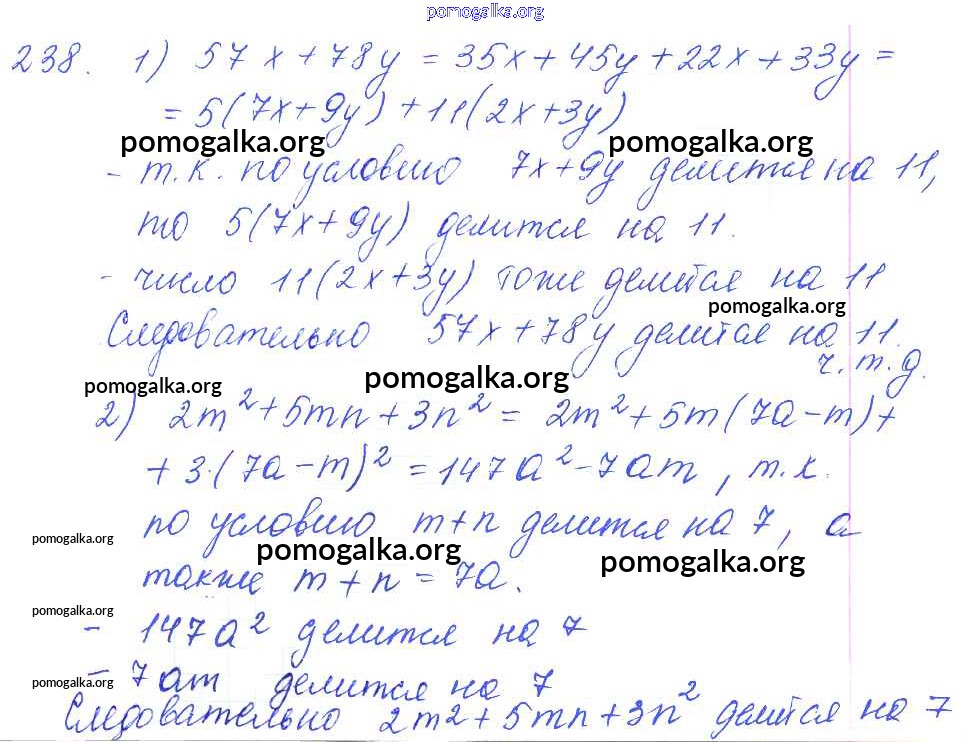 pomogalka.org
238. 1) 57x+78y = 35x+45y+22x+33y =
= 5(7x+9y)+11(2x+3y)
pomogalka.org pomogalka.org
- т.к. по условию 7x+9y делится на 11,
то 5(7x+9y) делится на 11.
- число 11(2x+3y) тоже делится на 11
pomogalka.org
Следовательно 57x+78y делится на 11.
ч.т.д.
pomogalka.org pomogalka.org
2) 2m²+5mn+3n² = 2m²+5m(7a-m)+
+3·(7a-m)² = 147a²-7am, т.к.
по условию m+n делится на 7, а
pomogalka.org pomogalka.org pomogalka.org
также m+n = 7a.
pomogalka.org
- 147a² делится на 7
- 7am делится на 7
pomogalka.org
Следовательно 2m²+5mn+3n² делится на 7